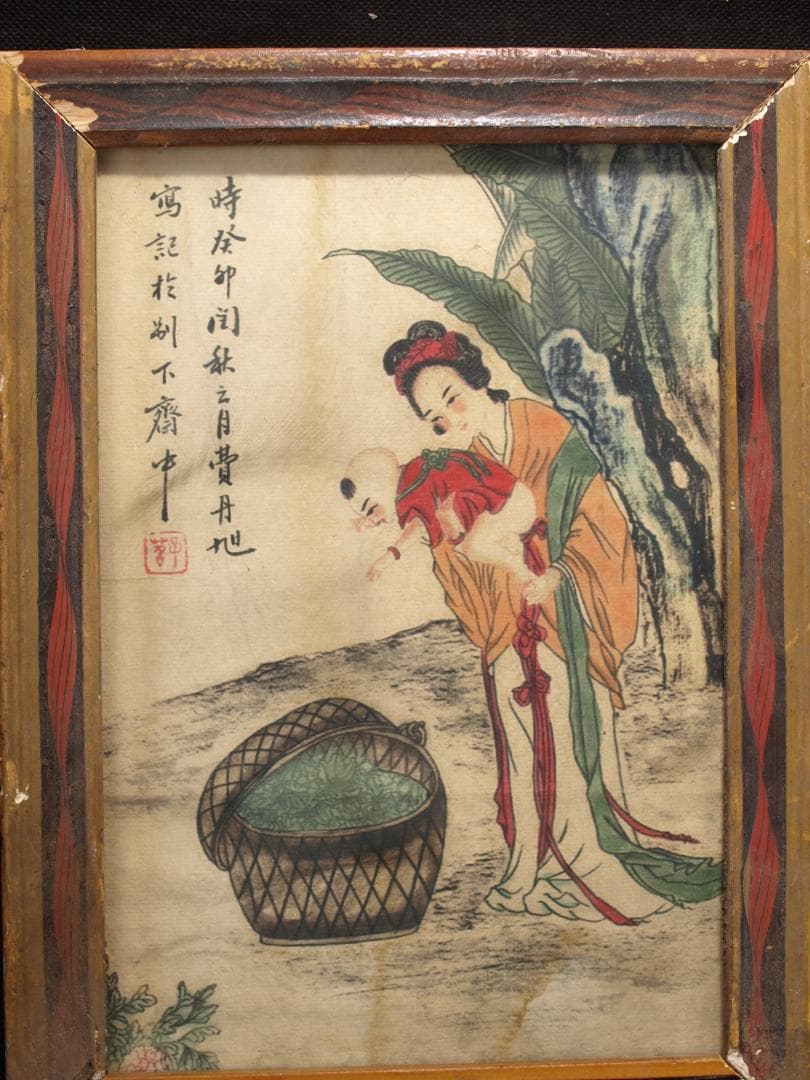 時癸卯閏秋之月費丹旭
寫記於別下齋中